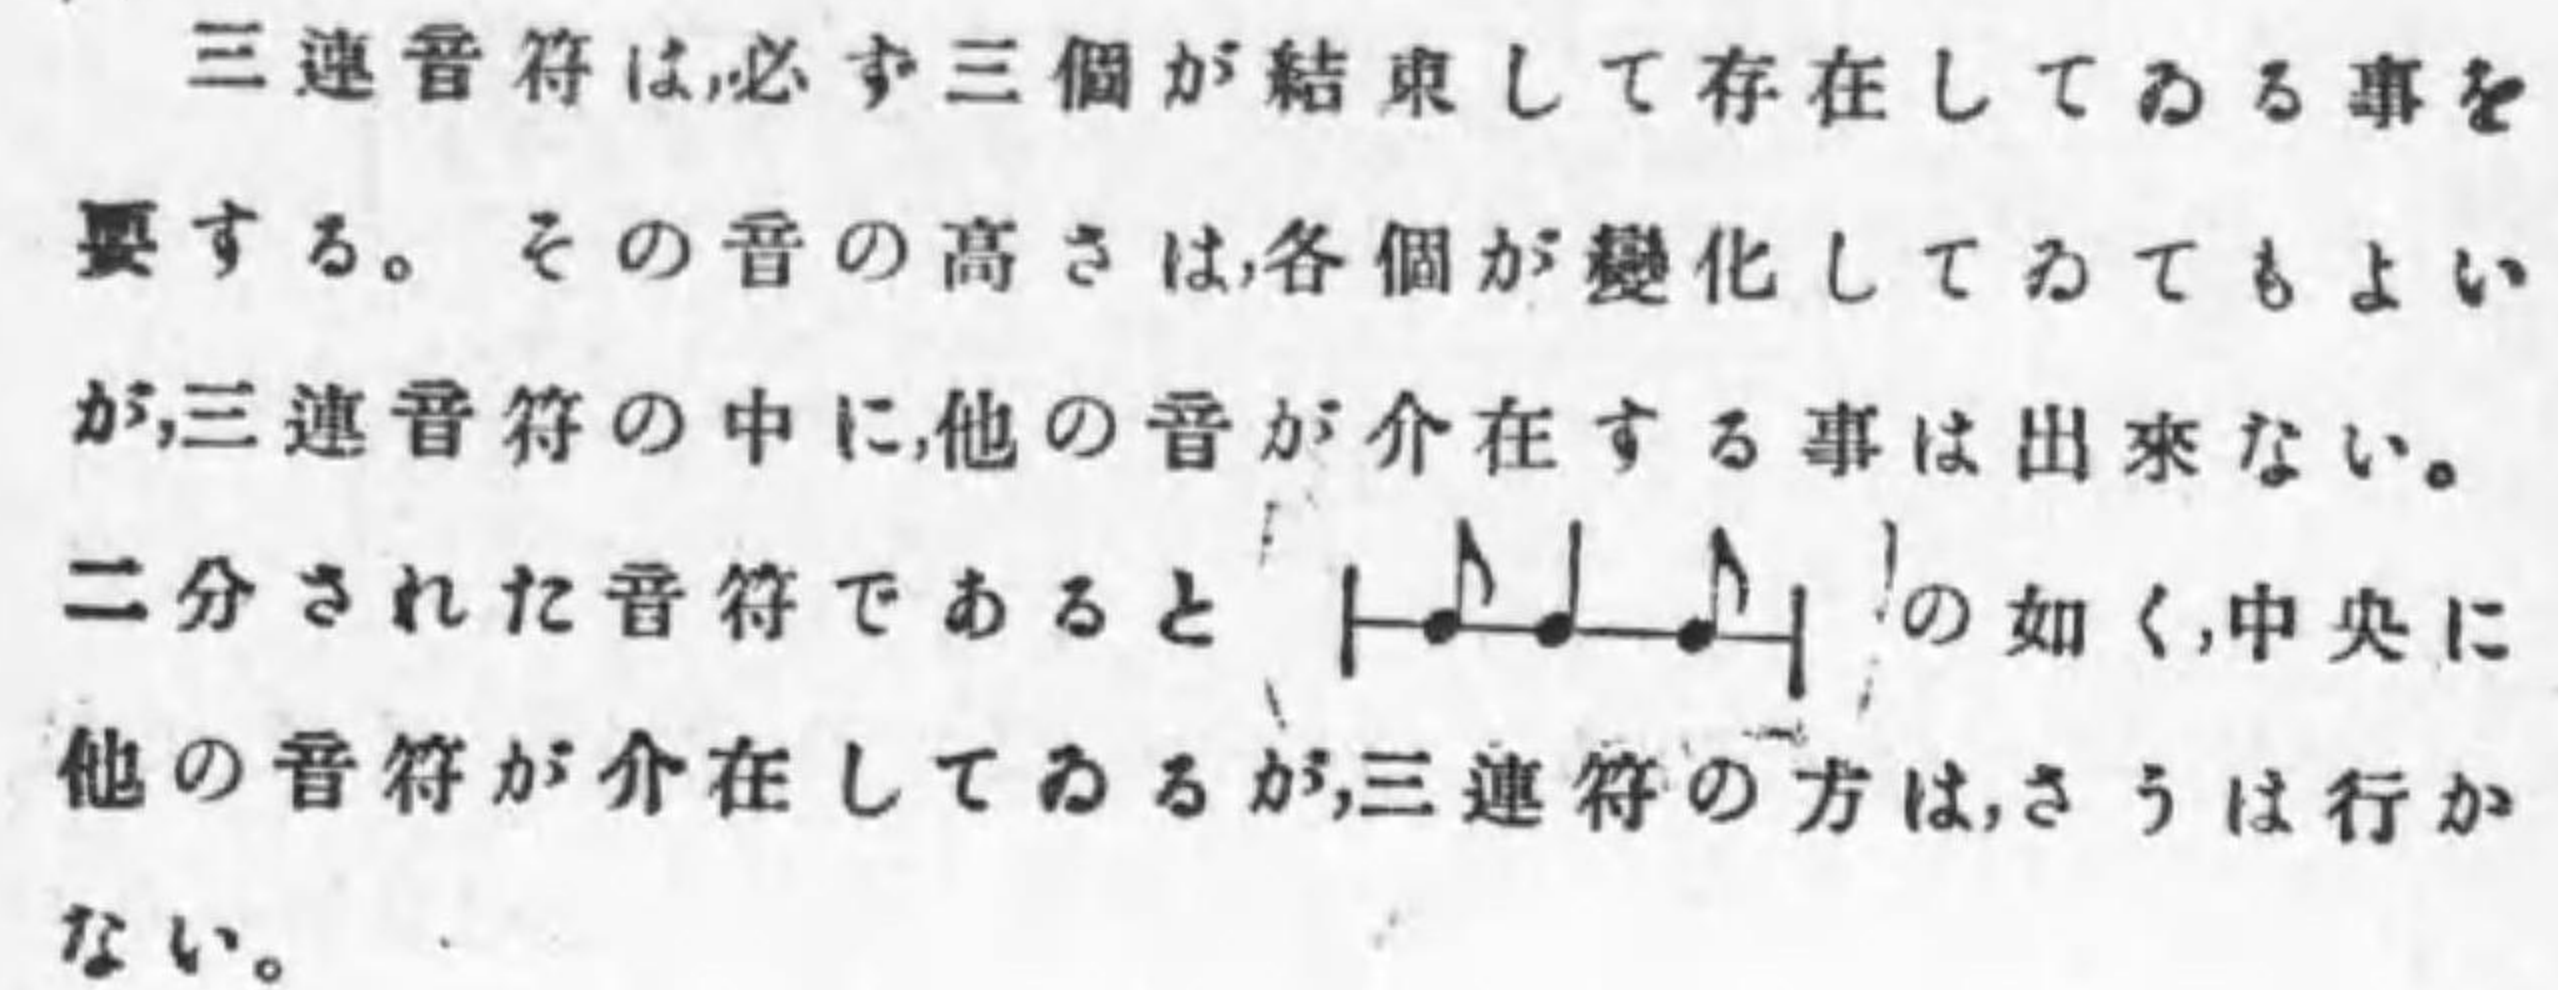 三連音符は,必ず三個が結束して存在してゐる事を
要する。その音の高さは,各個が變化してゐてもよい
が,三連音符の中に,他の音が介在する事は出來ない。
二分された音符であると の如く,中央に
他の音符が介在してゐるが,三連符の方は,さうは行か
ない。